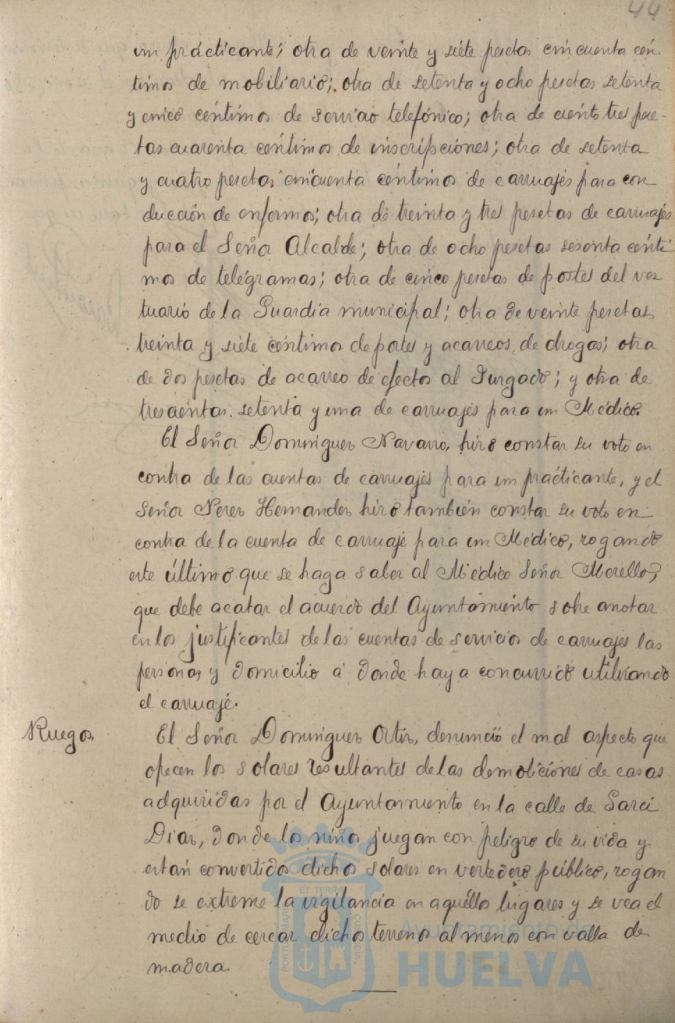 44
un practicante; otra de veinte y siete pesetas cincuenta cén-
timos de mobiliario; otra de setenta y ocho pesetas setenta
y cinco céntimos de servicio telefónico; otra de ciento tres pese-
tas cuarenta céntimos de inscripciones; otra de setenta
y cuatro pesetas cincuenta céntimos de carruajes para con-
ducción de enfermos; otra de treinta y tres pesetas de carruajes
para el Señor Alcalde; otra de ocho pesetas sesenta cénti-
mos de telegramas; otra de cinco pesetas de portes del ves-
tuario de la Guardia municipal; otra de veinte pesetas
treinta y siete céntimos de portes y acarreos de drogas; otra
de dos pesetas de acarreo de efectos al Juzgado; y otra de
trescientas setenta y una de carruajes para un Médico.
El Señor Dominguez Navarro, hizo constar su voto en
contra de las cuentas de carruajes para un practicante, y el
Señor Perez Hernandez hizo también constar su voto en
contra de la cuenta de carruaje para un Médico, rogando
este último que se haga saber al Médico Señor Morello,
que debe acatar el acuerdo del Ayuntamiento sobre anotar
en los justificantes de las cuentas de servicios de carruajes las
personas y domicilio á donde haya concurrido utilizando
el carruaje.
Ruegos
El Señor Dominguez Ortiz, denunció el mal aspecto que
ofrecen los solares resultantes de las demoliciones de casas
adquiridas por el Ayuntamiento en la calle de Garci
Diaz, donde los niños juegan con peligro de su vida y
están convertidos dichos solares en vertedero público, rogan-
do se extreme la vigilancia en aquéllos lugares y se vea el
medio de cercar dichos terrenos al menos con valla de
madera.
Ayuntamiento de
HUELVA